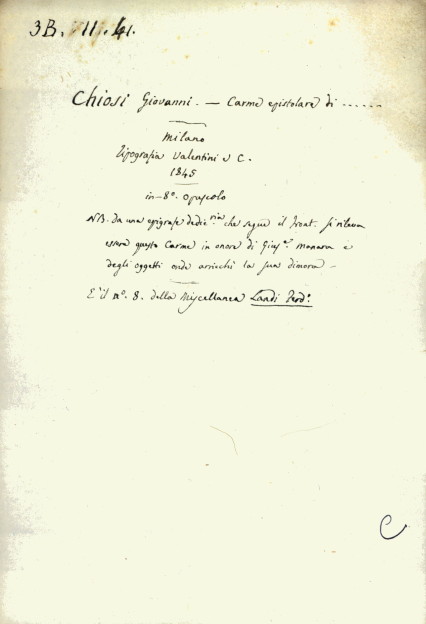 3B. 11. 41.
Chiosi Giovanni. — Carme epistolare di ......
Milano
Tipografia Valentini e C.
1845
in-8º. opuscolo
NB. da una epigrafe dedic.ria che segue il front. si rileva
essere questo Carme in onore di Gius.e Monara e
degli oggetti onde arricchì la sua dimora —
E' il nº. 8. della Miscellanea Landi Ferd.º
C